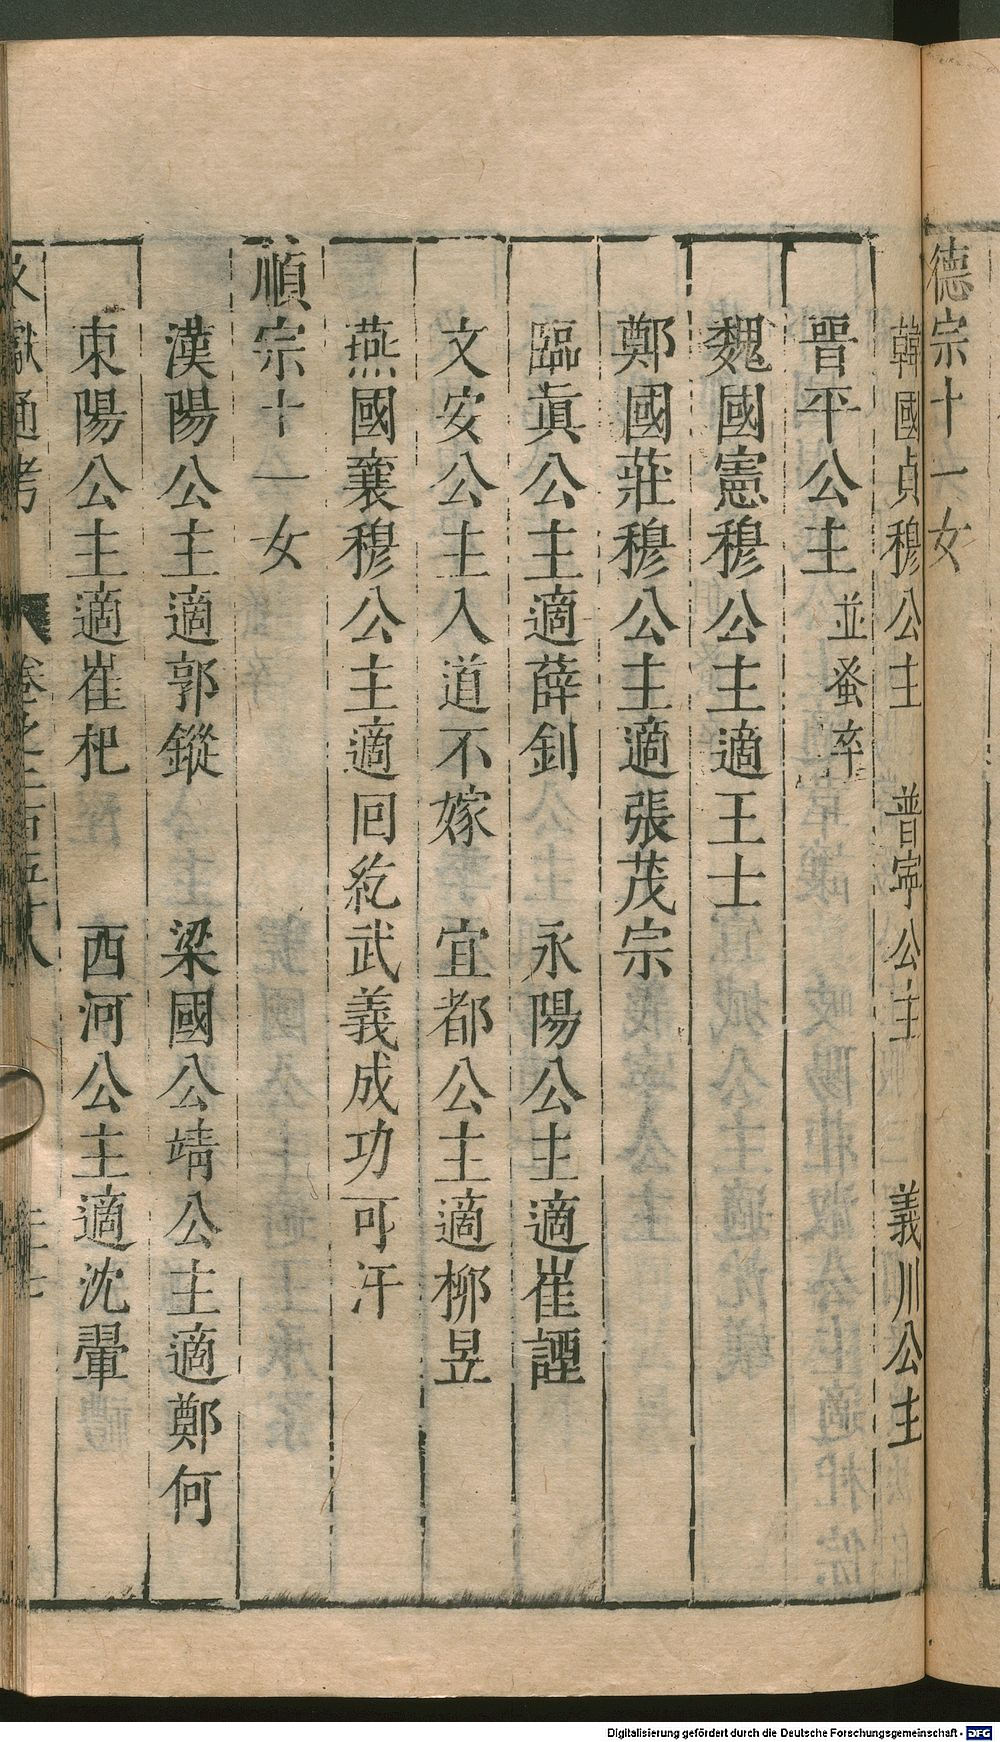 德宗十一女
韓國貞穆公主　普寧公主　義川公主
晉平公主　並蚤卒
魏國憲穆公主適王士
鄭國莊穆公主適張茂宗
臨眞公主適薛釗　永陽公主適崔諲
文安公主入道不嫁　宜都公主適柳昱
燕國襄穆公主適回紇武義成功可汗
順宗十一女
漢陽公主適郭鏦　梁國公靖公主適鄭何
東陽公主適崔杞　西河公主適沈翬
文獻通考　卷之二百五十八
Digitalisierung gefördert durch die Deutsche Forschungsgemeinschaft - DFG